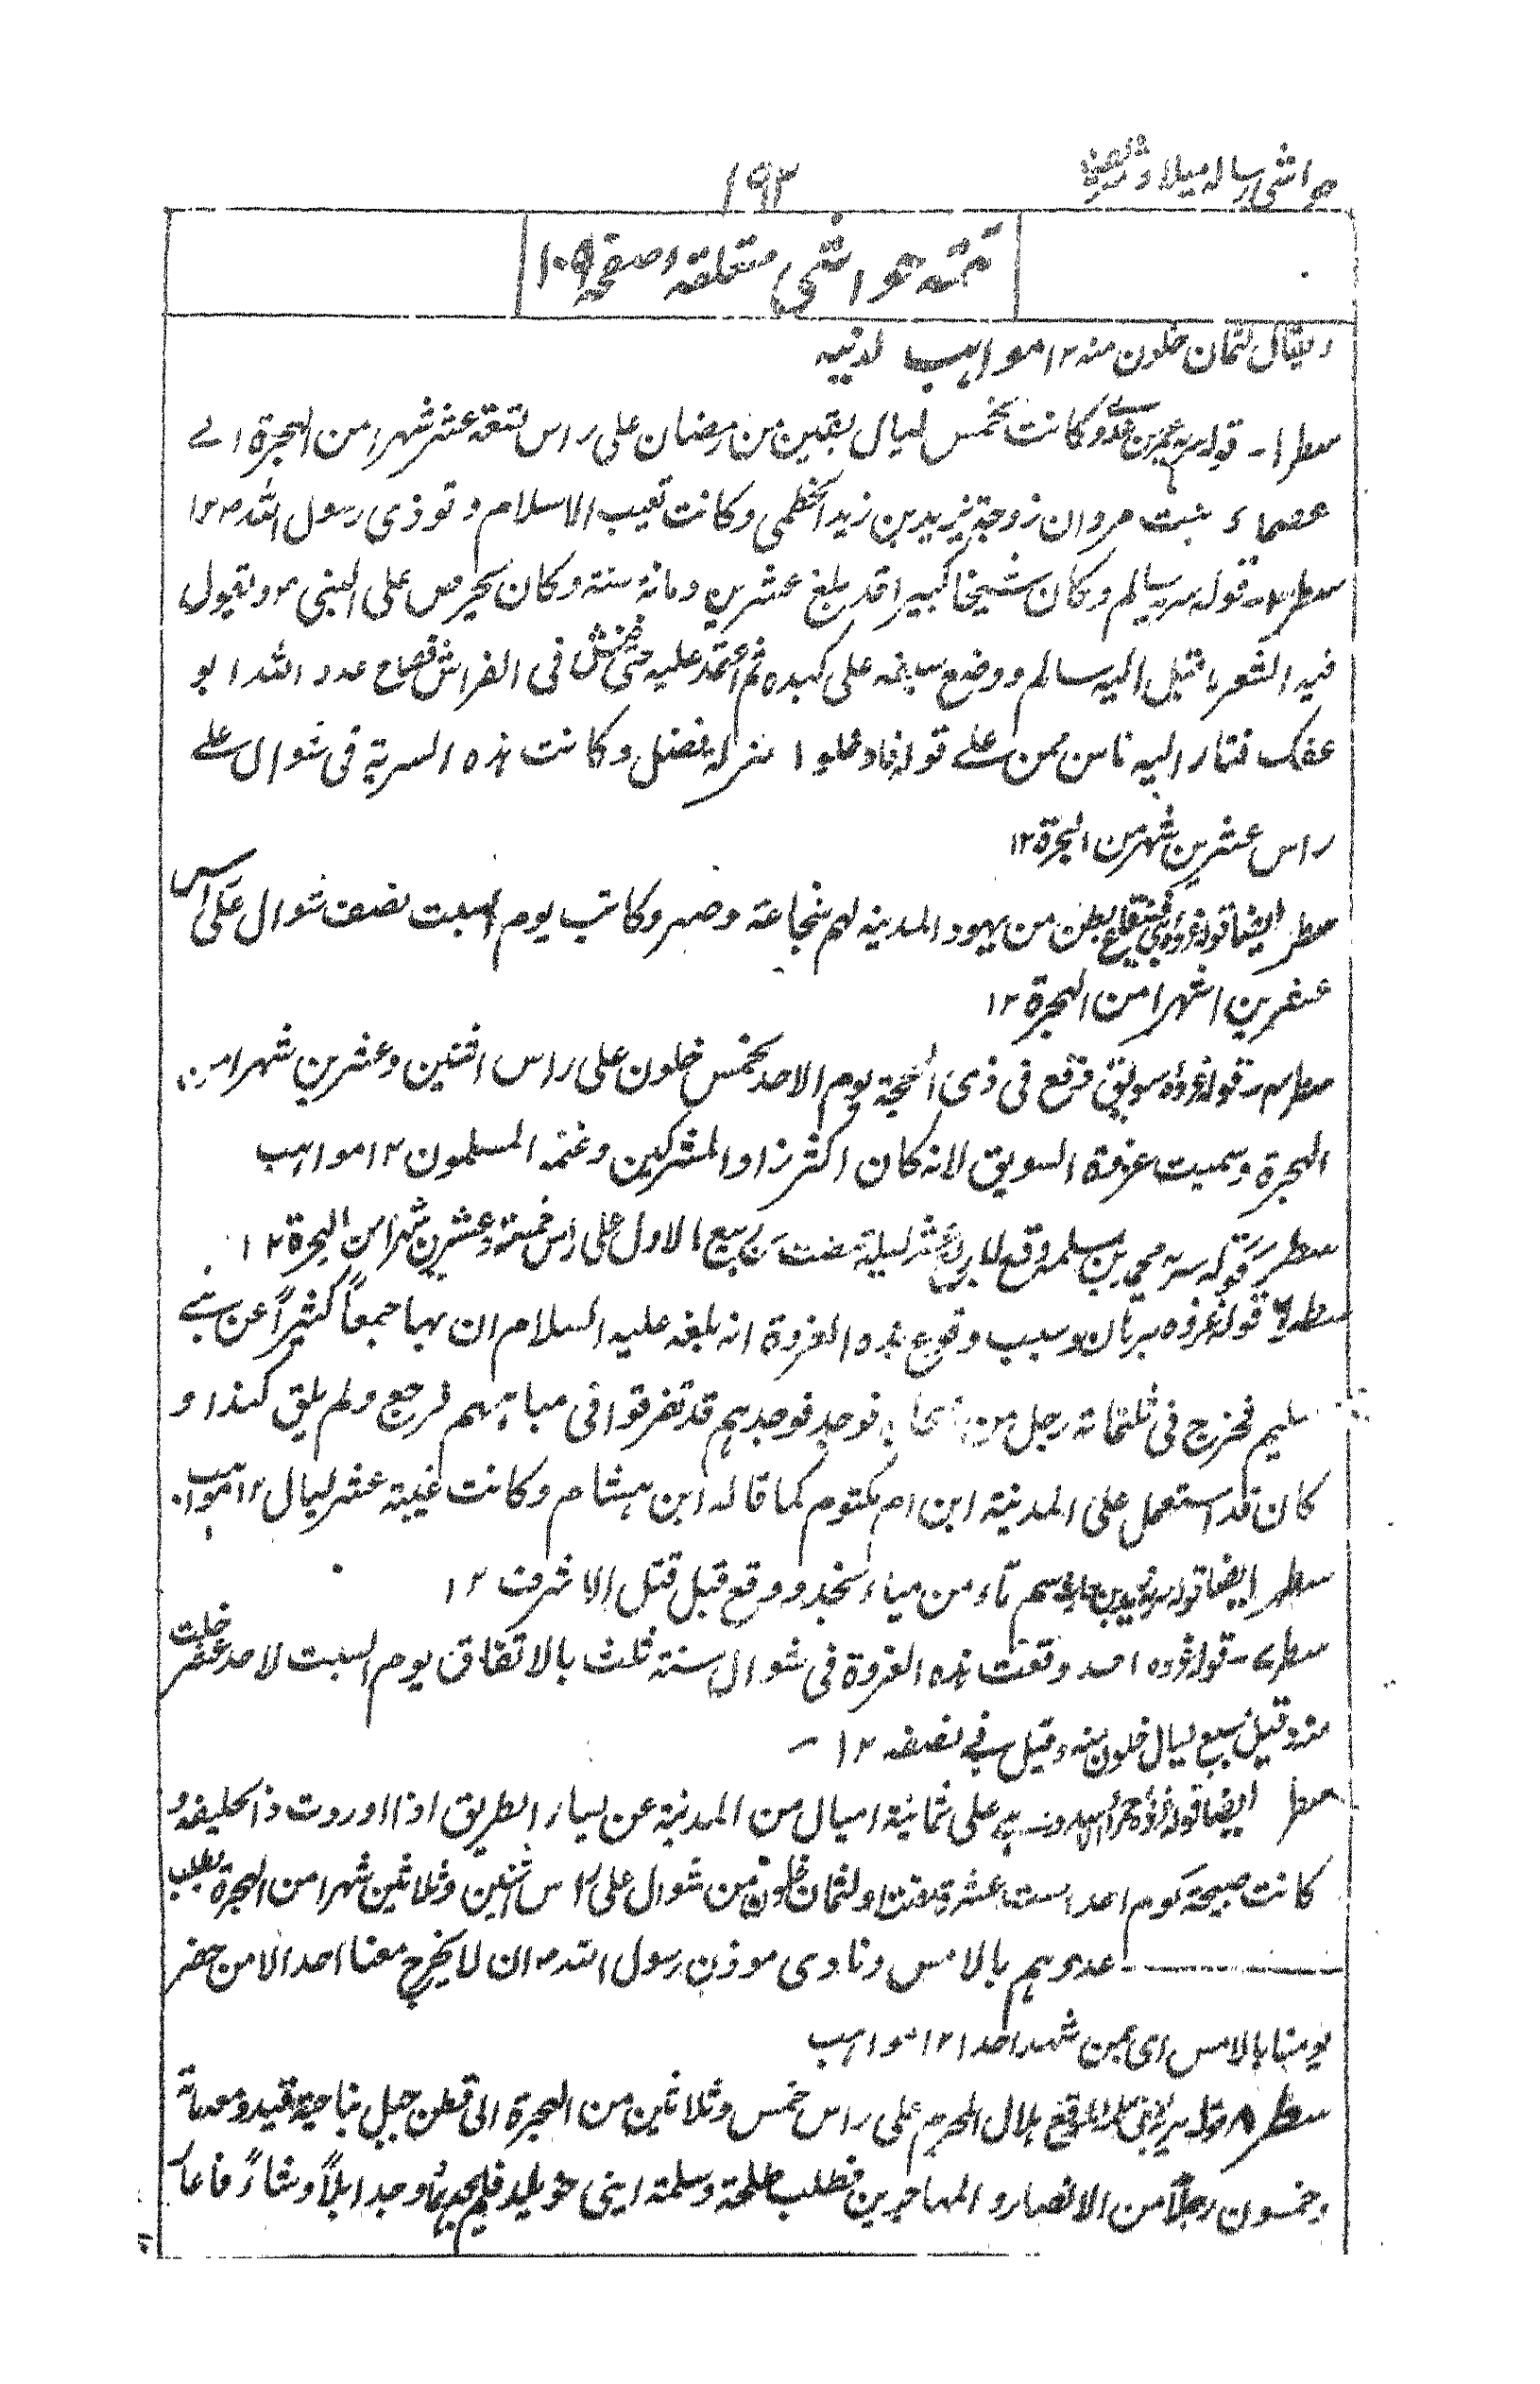 حواشی رسالہ میلاد شریف
۱۹۳
تتمہ حواشی متعلقہ صفحہ ۱۰۹
ویقال لثمان خلون منہ ۱۲ مواہب لدنیہ
سطر ۱- قولہ سریہ عمیر بن عدی وکانت لخمس لیال بقین من رمضان علی راس تسعۃ عشر شہرا من الہجرۃ الے
عصماء بنت مروان زوجۃ یزید بن زید الخطمی وکانت تعیب الاسلام وتوذی رسول اللہ ۱۲
سطر قولہ سریہ سالم وکان شیخا کبیرا قد بلغ عشرین ومائۃ سنۃ وکان یحرص علی النبی ویقول
فیہ الشعر فاقبل الیہ سالم ووضع سیفہ علی کبدہ ثم اعتمد علیہ حتی خش فی الفراش فصاح عدو اللہ ابو
عفک فثار الیہ ناس ممن علے قولہ فادخلوا منزلہ فقتل وکانت ہذہ السریۃ فی شوال علے
راس عشرین شہر من الہجرۃ ۱۲
سطر ایضا قولہ غزوہ بنی قینقاع بطن من یہود المدینہ لہم شجاعۃ وصبر وکانت یوم السبت نصف شوال علی راس
عشرین اشہرا من الہجرۃ ۱۲
سطر قولہ غزوہ سویق وقع فی ذی الحجۃ یوم الاحد لخمس خلون علی راس اثنین وعشرین شہرا من
الہجرۃ وسمیت غزوۃ السویق لانہ کان اکثر زاد المشرکین وغنمہ المسلمون ۱۲ مواہب
سطر قولہ سریہ محمد بن مسلمہ وقع لاربع عشر لیلۃ مضت من ربیع الاول علی راس خمسۃ وعشرین شہرا من الہجرۃ ۱۲
سطر ۶ قولہ غزوہ وسبب وقوع ہذہ الغزوۃ انہ بلغہ علیہ السلام ان بہا جمعاً کثیراً من بنے
سلیم فخرج فی ثلثمائۃ رجل من فوجد فوجدہم قد تفرقوا فی میاہہم فرجع ولم یلق کیدا و
کان قد استعمل علی المدینۃ ابن ام مکتوم کما قالہ ابن ہشام وکانت غیبتہ عشر لیال ۱۲ مواہب
سطر ایضا قولہ سریہ زید بن حارثہ اسم ماء من میاہ نجد ووقع قبل قتل الاشرف ۱۲
سطر ۷- قولہ غزوہ احد وقعت ہذہ الغزوۃ فی شوال سنۃ ثلث بالاتفاق یوم السبت لاحد عشر خلت
منہ وقیل لسبع لیال خلون منہ وقیل فے نصفہ ۱۲
سطر ایضا قولہ غزوہ حمراء الاسد وہے علی ثمانیۃ امیال من المدینۃ عن یسار الطریق اذا اردت ذا الحلیفۃ و
کانت صبیحۃ یوم احد لست عشرۃ مضت او لثمان خلون من شوال علی راس اثنین وثلاثین شہرا من الہجرۃ لطلب
عدوہم بالامس ونادی موذن رسول اللہ ان لا یخرج معنا احد الا من حضر
یومنا بالامس ای من شہد احدا ۱۲ مواہب
سطر ۸ قولہ سریہ وقع ہلال المحرم علی راس خمس وثلاثین من الہجرۃ الی قطن جبل بناحیۃ فید ومعہ مائۃ
وخمسون رجلاً من الانصار والمہاجرین فطلب طلحۃ وسلمۃ ابنی خویلد فلم یجدہما ووجد ابلاً وشاءً فاغار